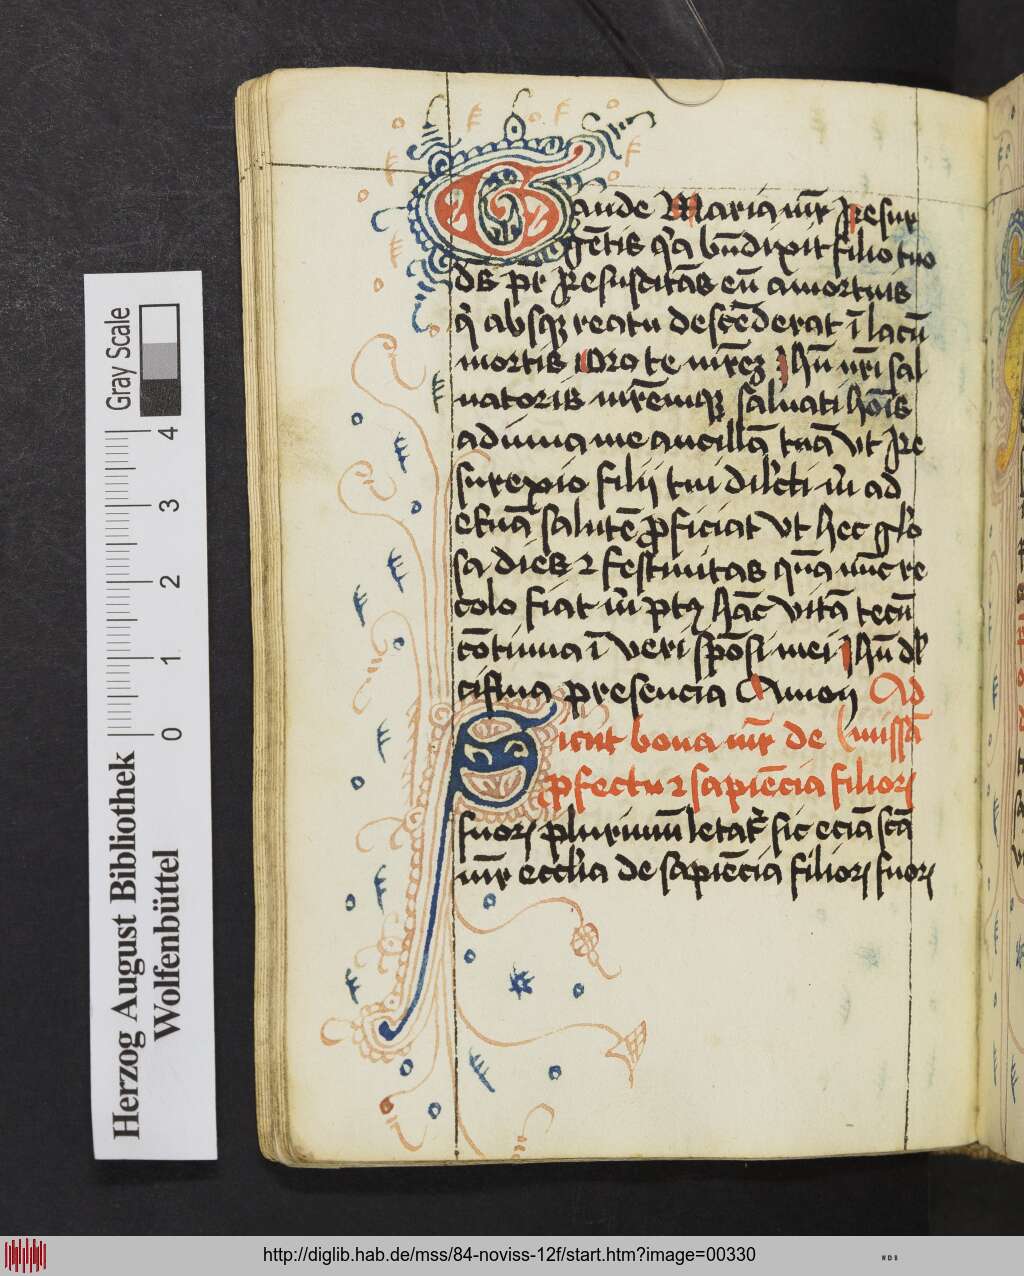 Gaude Maria mr̄ Resur
gētis q̄a bn̄dixit filio tuo
ds pr̄ Resuscitās eū amortuis
q̄ absq reatu descēderat ī lacū
mortis Oro te mr̄ez Jhū nr̄i sal
uatoris mr̄emq saluati hōis
adiuua me ancillā tuā vt Re
surexio filij tui dil̄cti m̄ ad
et̄nā salutē ꝓficiat vt hec glo
sa dies ⁊ festiuitas quā nūc re
colo fiat m̄ pꝰ hāc vitā tecū
cōtinua ī veri spōsi mei Jhū dl̄
cisſima presencia Amen Ad
Sicut bona mr̄ de missā
ꝓfectu ⁊ sapiēcia filioꝝ
suoꝝ plurimū letat̄ sic eciā scā
mr̄ eccl̄ia de sapiēcia filioꝝ suoꝝ
Gray Scale
4
3
2
1
0
Herzog August Bibliothek
Wolfenbüttel
http://diglib.hab.de/mss/84-noviss-12f/start.htm?image=00330